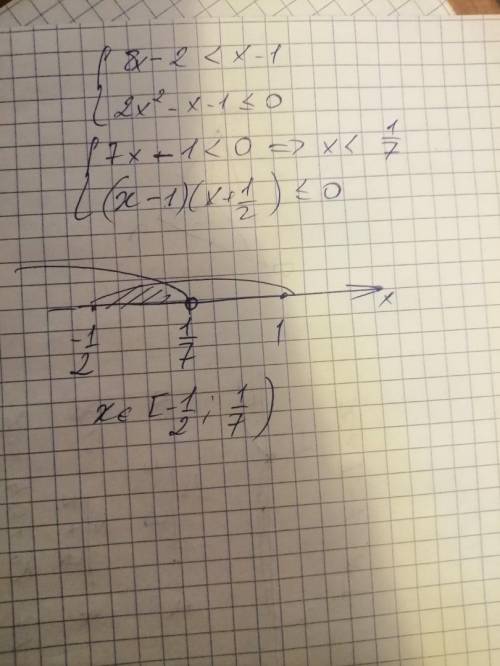 { 8x - 2 < x - 1
2x² - x - 1 ≤ 0
{ 7x - 1 < 0 => x < 1/7
(x - 1)(x + 1/2) ≤ 0
-1/2 1/7 1 x
x ∈ [-1/2; 1/7)